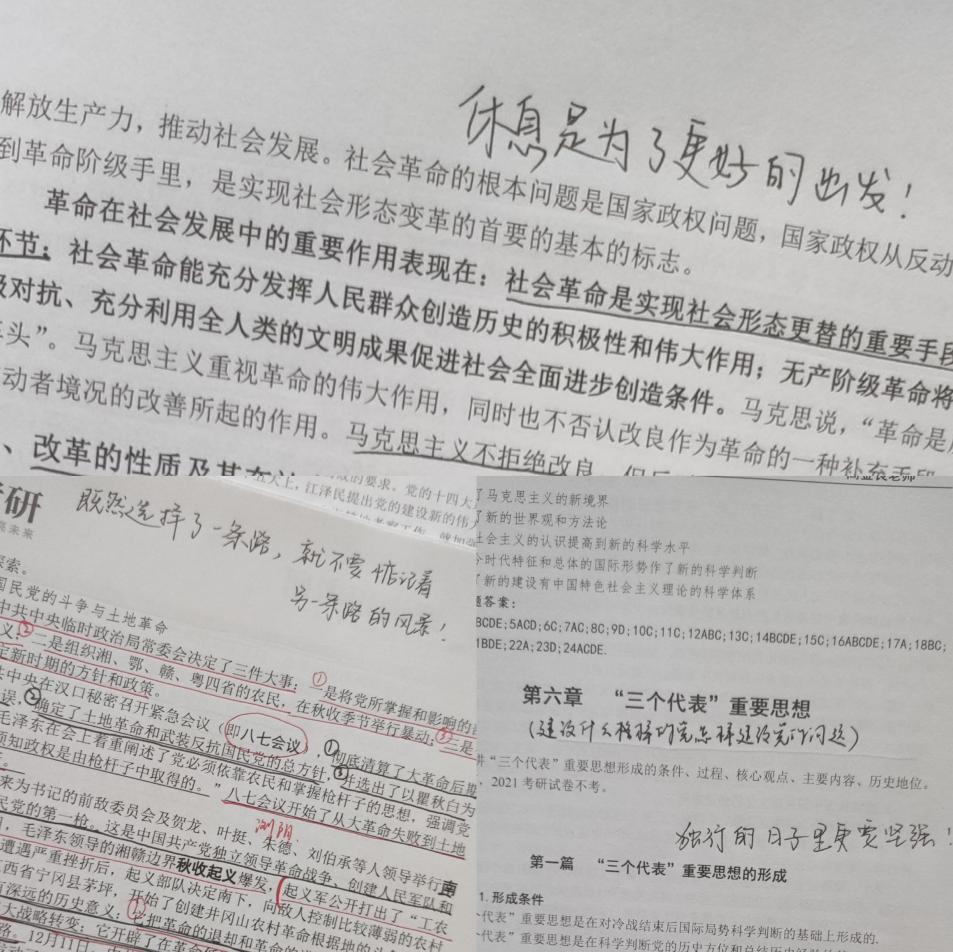 休息是为了更好的出发！
解放生产力，推动社会发展。社会革命的根本问题是国家政权问题，国家政权从反动
到革命阶级手里，是实现社会形态变革的首要的基本的标志。
革命在社会发展中的重要作用表现在：社会革命是实现社会形态更替的重要手段
环节；社会革命能充分发挥人民群众创造历史的积极性和伟大作用；无产阶级革命将
对抗、充分利用全人类的文明成果促进社会全面进步创造条件。马克思说，“革命是
头”。马克思主义重视革命的伟大作用，同时也不否认改良作为革命的一种补充手段
动者境况的改善所起的作用。马克思主义不拒绝改良
、改革的性质及其在
的要求。党的十四大
上，江泽民提出党的建设新的伟
研
既然选择了一条路，就不要惦记着
另一条路的风景！
探索。
国民党的斗争与土地革命
中共中央临时政治局常委会决定了三件大事：①一是将党所掌握和影响的
义；②二是组织湘、鄂、赣、粤四省的农民，在秋收季节举行暴动；③三是
定新时期的方针和政策。
共中央在汉口秘密召开紧急会议（即八七会议），①彻底清算了大革命后期
误，②确定了土地革命和武装反抗国民党的总方针，③并选出了以瞿秋白为
毛泽东在会上着重阐述了党必须依靠农民和掌握枪杆子的思想，强调党
须知政权是由枪杆子中取得的。”八七会议开始了从大革命失败到土地
来为书记的前敌委员会及贺龙、叶挺、朱德、刘伯承等人领导举行南
浏阳
民党的第一枪。这是中国共产党独立领导革命战争、创建人民军队和
，毛泽东领导的湘赣边界秋收起义爆发，起义军公开打出了“工农
遭遇严重挫折后，起义部队决定南下，向敌人控制比较薄弱的农村
西省宁冈县茅坪，开始了创建井冈山农村革命根据地的斗
深远的历史意义：①它把革命的退却和革命的
大战略转变；它开辟了在革命
路。12月11日，
了马克思主义的新境界
了新的世界观和方法论
社会主义的认识提高到新的科学水平
今时代特征和总体的国际形势作了新的科学判断
了新的建设有中国特色社会主义理论的科学体系
题答案：
BCDE;5ACD;6C;7AC;8C;9D;10C;11C;12ABC;13C;14BCDE;15C;16ABCDE;17A;18BC;
1BDE;22A;23D;24ACDE.
第六章 “三个代表”重要思想
（建设什么样的党怎样建设党的问题）
“三个代表”重要思想形成的条件、过程、核心观点、主要内容、历史地位。
，2021考研试卷不考。
独行的日子里更要坚强！
第一篇 “三个代表”重要思想的形成
1.形成条件
代表”重要思想是在对冷战结束后国际局势科学判断的基础上形成的.
代表”重要思想是在科学判断党的历史方位和总结历史经验的